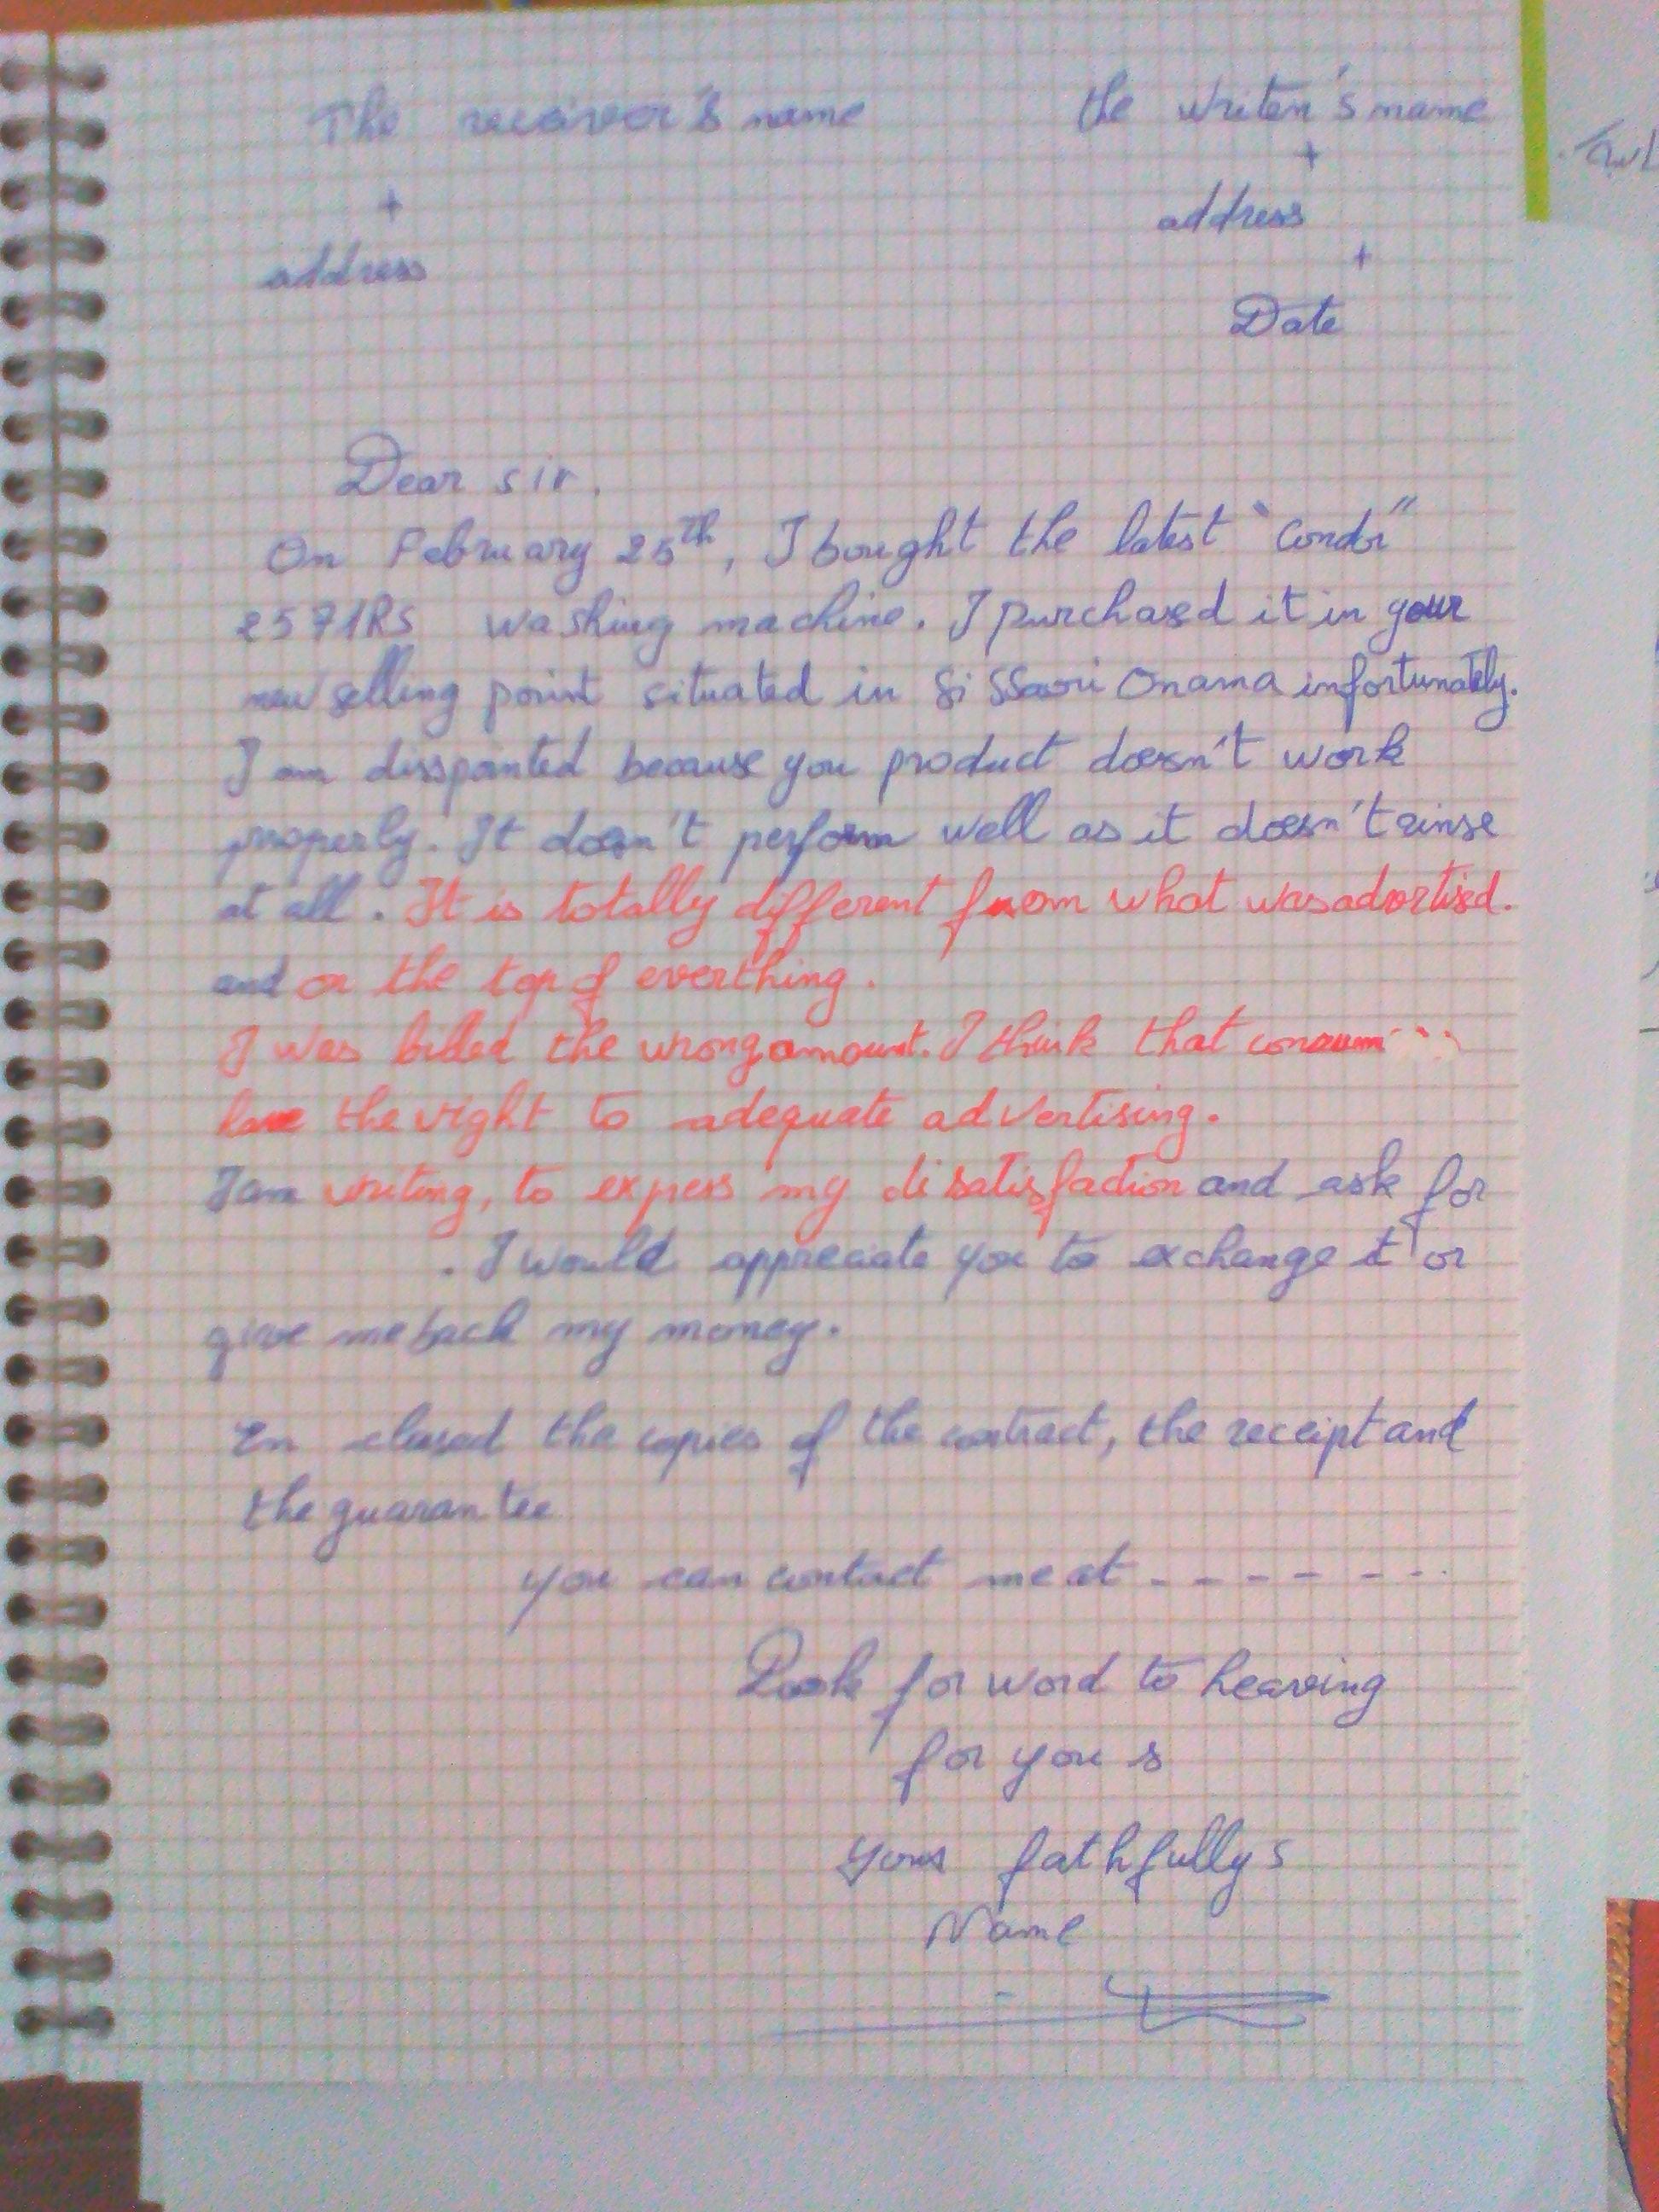 The receiver's name the writen's name
+ +
address address
+
Date
Dear sir.
On February 25th, I bought the latest "Condor"
2571RS washing machine. I purchased it in your
new selling point situated in Si Onama infortunately.
I am disspointed because you product doesn't work
properly. It doesn't perform well as it doesn't rinse
at all. It is totally different from what was advertised.
and on the top of everthing.
I was billed the wrong amount. I think that
have the right to adequate advertising.
I am writing, to express my disatisfaction and ask for
. I would appreciate you to exchange it or
give me back my money.
En closed the copies of the contract, the receipt and
the guarantee
you can contact me at - - - - - - -
Look for word to hearing
for you s
yours fathfullys
Name